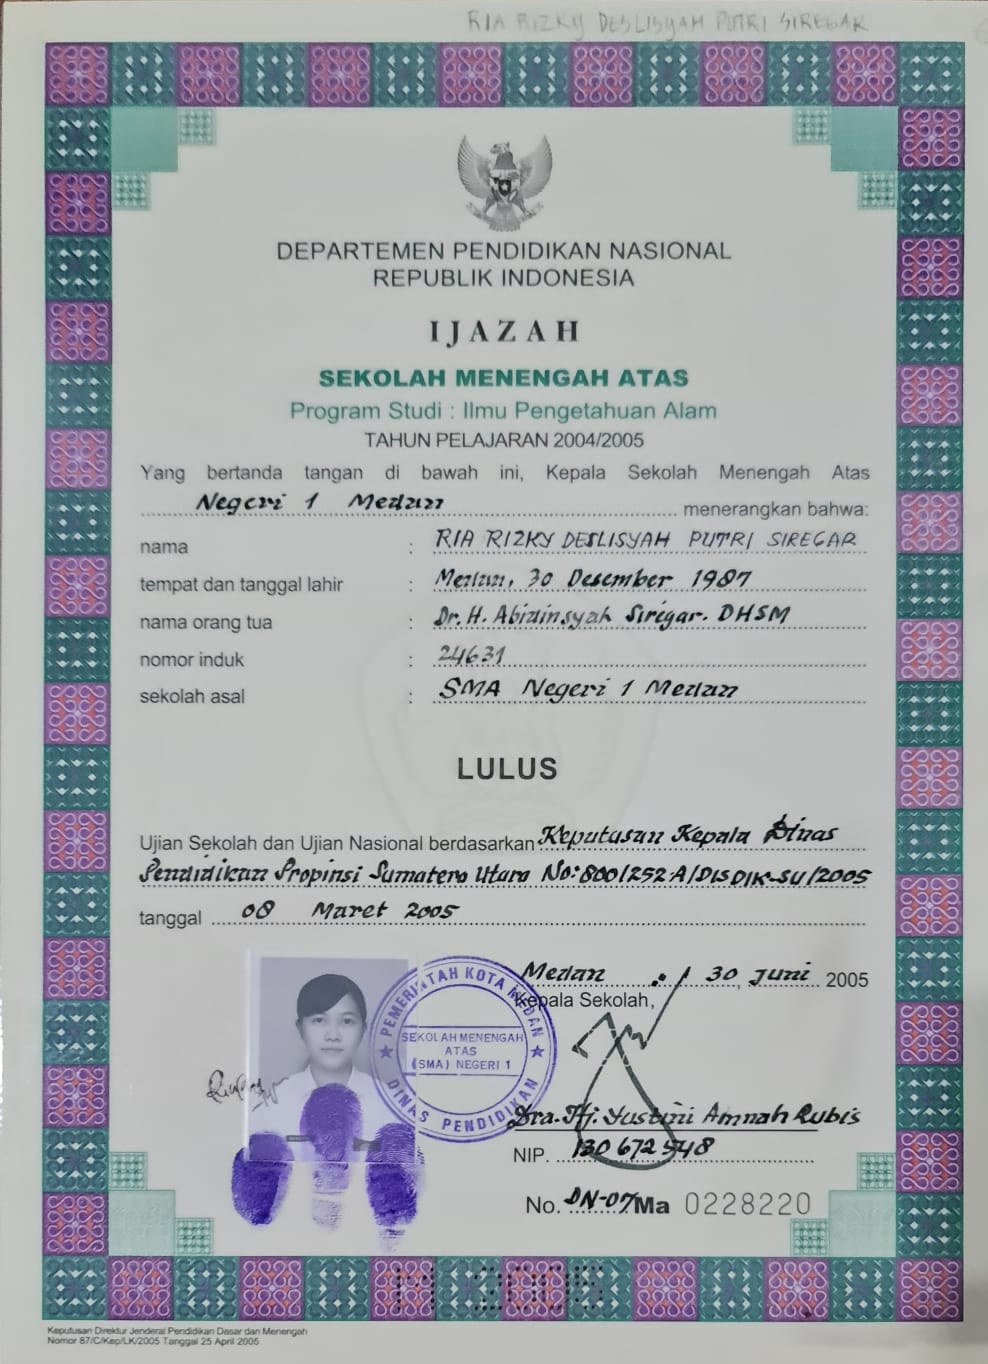 RIA RIZKY DESLISYAH PUTRI SIREGAR
DEPARTEMEN PENDIDIKAN NASIONAL
REPUBLIK INDONESIA
IJAZAH
SEKOLAH MENENGAH ATAS
Program Studi : Ilmu Pengetahuan Alam
TAHUN PELAJARAN 2004/2005
Yang bertanda tangan di bawah ini, Kepala Sekolah Menengah Atas
Negeri 1 Medan menerangkan bahwa:
nama : RIA RIZKY DESLISYAH PUTRI SIREGAR
tempat dan tanggal lahir : Medan, 30 Desember 1987
nama orang tua : Dr. H. Abidinsyah Siregar. DHSM
nomor induk : 24631
sekolah asal : SMA Negeri 1 Medan
LULUS
Ujian Sekolah dan Ujian Nasional berdasarkan Keputusan Kepala Dinas
Pendidikan Propinsi Sumatera Utara No: 800/252 A/DISDIK-SU/2005
tanggal 08 Maret 2005
Medan, 30 Juni 2005
Kepala Sekolah,
PEMERINTAH KOTA MEDAN
SEKOLAH MENENGAH
ATAS
(SMA) NEGERI 1
DINAS PENDIDIKAN
Dra. Hj. Yustini Amnah Lubis
NIP. 130 672 548
No. DN-07/Ma 0228220
M 2005
Keputusan Direktur Jenderal Pendidikan Dasar dan Menengah
Nomor 87/C/Kep/LK/2005 Tanggal 25 April 2005